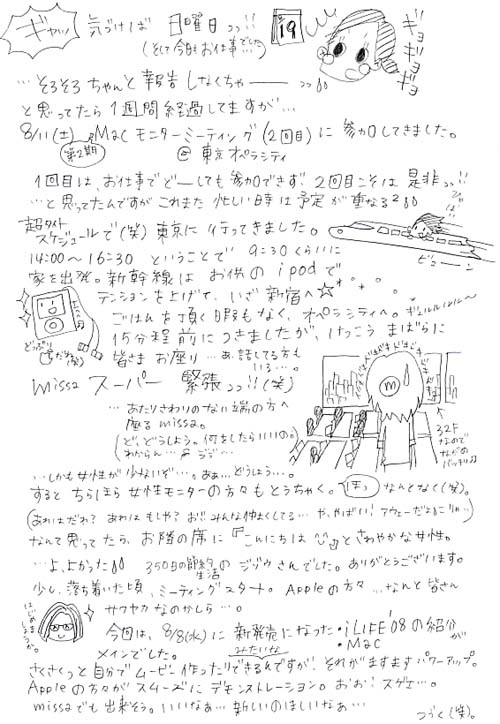 ギャッ
気づけば 日曜日ッッ!!
19
(そして今日もお仕事でした)
ギョ
ギョ
ギョ
…そろそろ ちゃんと 報告 しなくちゃ――― ッッ
と思ってたら 1週間 経過してますが…
8/11(土) Mac モニターミーティング(2回目)に 参加してきました。
第2期
@ 東京オペラシティ
1回目は、お仕事でどーしても参加できず。2回目こそは 是非ッッ!!
…と思ってたんですが これまた 忙しい時は予定が 重なる
超タイト
スケジュールで(笑) 東京に 行ってきました。
ビューーン
14:00〜16:30 ということで 9:30くらいに
家を出発。新幹線は お供の ipodで
テンションを上げて、いざ 新宿へ☆
ごはんを頂く暇もなく、オペラシティへ。
15分程前につきましたが、けっこう まばらに
皆さま お座り …あ、話してる方も
いる…。
missa スーパー 緊張ッッ!!(笑)
ドキドキドキドキ
m
…あたりさわりのない端の方へ
座るmissa。
(ど、どうしよう。何をしたらいいの。
わからん…
32F
なので
ながめ
バッチリ
…しかも女性が 少ないぞ…。あぁ…どうしよう…。
すると ちらほら 女性モニターの方々も とうちゃく。(ホッ) なんとなく(笑)。
(あれはだれ? あれは もしや? お!! みんな仲よくしてる… や、やばい! アウェーだよ
なんて思ってたら、お隣の席に『こんにちは』とさわやかな女性。
…よ、よかった 350日の節約生活の ジゾウさんでした。ありがとうございます。
少し、落ち着いた頃、ミーティングスタート。Appleの方々 …なんと皆さん
サワヤカ なのかしら…。
はじめまして
今回は、8/8(水)に 新発売になった ・iLIFE'08の紹介が
みたいな
・Mac
メインでした。
さくさくっと自分でムービー作ったりできるんですが、それがますますパワーアップ。
Appleの方々が スムーズに デモンストレーション。おお! スゲェ…。
missaでも出来そう。いいなぁ… 新しいのほしいなぁ…
つづく(笑)。